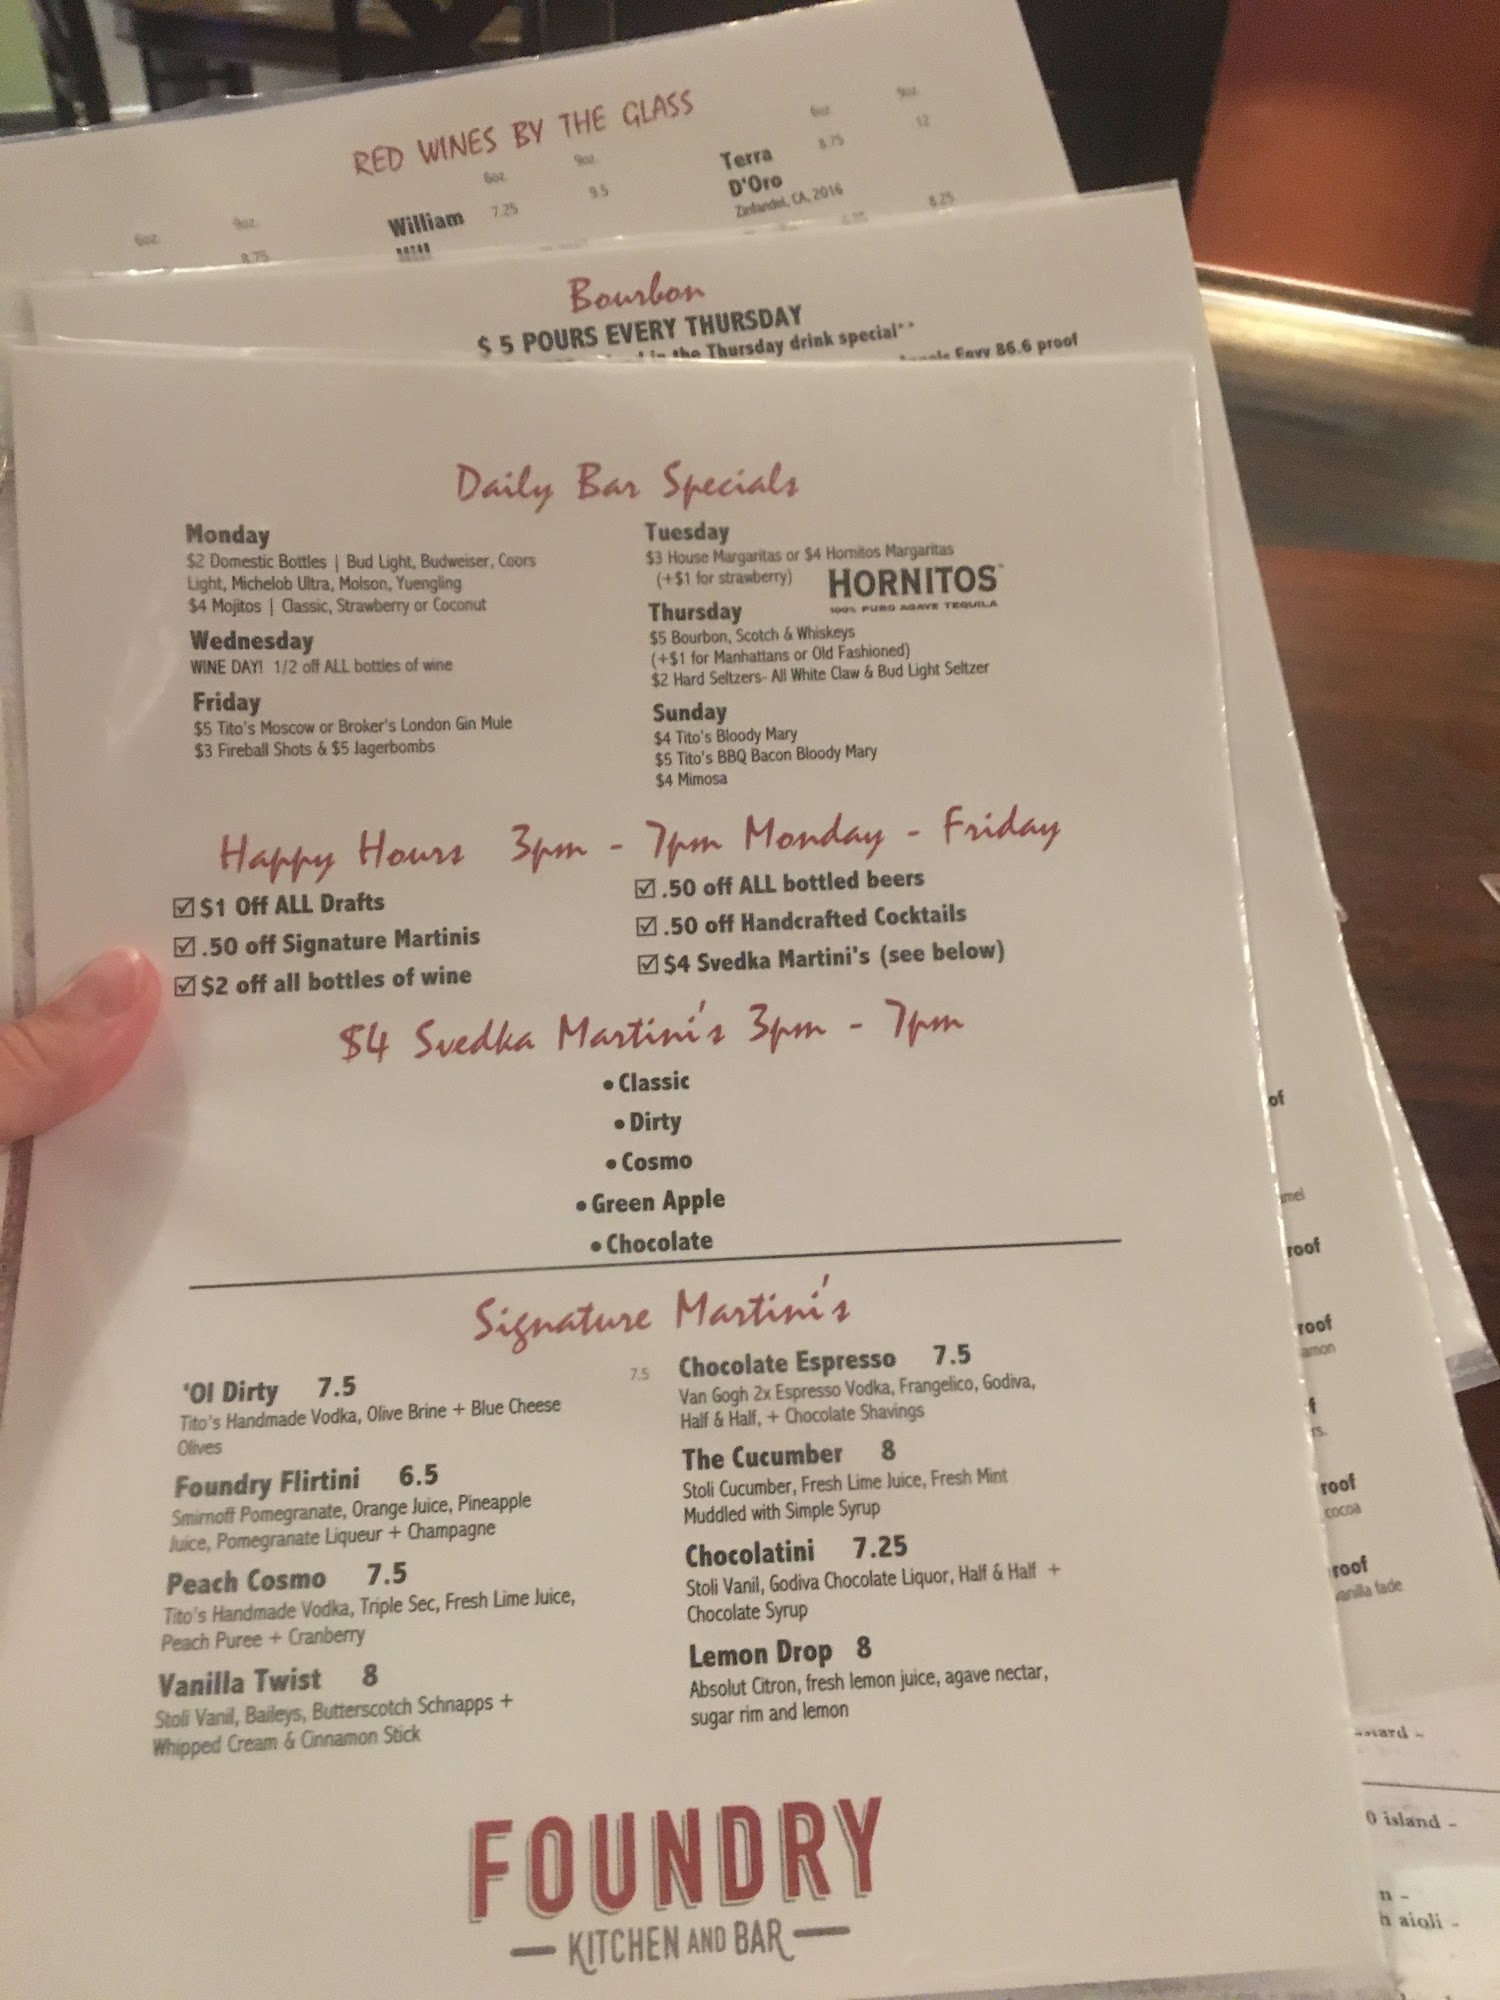 RED WINES BY THE GLASS
6oz. 9oz.
8.75
6oz. 9oz.
William 7.25 9.5
6oz. 9oz.
Terra 8.75 12
D'Oro
Zinfandel, CA, 2016
8.25
Bourbon
$ 5 POURS EVERY THURSDAY
in the Thursday drink special**
Envy 86.6 proof
Daily Bar Specials
Monday
$2 Domestic Bottles | Bud Light, Budweiser, Coors
Light, Michelob Ultra, Molson, Yuengling
$4 Mojitos | Classic, Strawberry or Coconut
Wednesday
WINE DAY! 1/2 off ALL bottles of wine
Friday
$5 Tito's Moscow or Broker's London Gin Mule
$3 Fireball Shots & $5 Jagerbombs
Tuesday
$3 House Margaritas or $4 Hornitos Margaritas
(+$1 for strawberry)
HORNITOS
100% PURO AGAVE TEQUILA
Thursday
$5 Bourbon, Scotch & Whiskeys
(+$1 for Manhattans or Old Fashioned)
$2 Hard Seltzers- All White Claw & Bud Light Seltzer
Sunday
$4 Tito's Bloody Mary
$5 Tito's BBQ Bacon Bloody Mary
$4 Mimosa
Happy Hours 3pm - 7pm Monday - Friday
☑ $1 Off ALL Drafts
☑ .50 off Signature Martinis
☑ $2 off all bottles of wine
☑ .50 off ALL bottled beers
☑ .50 off Handcrafted Cocktails
☑ $4 Svedka Martini's (see below)
$4 Svedka Martini's 3pm - 7pm
• Classic
• Dirty
• Cosmo
• Green Apple
• Chocolate
Signature Martini's
'Ol Dirty 7.5
Tito's Handmade Vodka, Olive Brine + Blue Cheese
Olives
Foundry Flirtini 6.5
Smirnoff Pomegranate, Orange Juice, Pineapple
Juice, Pomegranate Liqueur + Champagne
Peach Cosmo 7.5
Tito's Handmade Vodka, Triple Sec, Fresh Lime Juice,
Peach Puree + Cranberry
Vanilla Twist 8
Stoli Vanil, Baileys, Butterscotch Schnapps +
Whipped Cream & Cinnamon Stick
7.5
Chocolate Espresso 7.5
Van Gogh 2x Espresso Vodka, Frangelico, Godiva,
Half & Half, + Chocolate Shavings
The Cucumber 8
Stoli Cucumber, Fresh Lime Juice, Fresh Mint
Muddled with Simple Syrup
Chocolatini 7.25
Stoli Vanil, Godiva Chocolate Liquor, Half & Half +
Chocolate Syrup
Lemon Drop 8
Absolut Citron, fresh lemon juice, agave nectar,
sugar rim and lemon
FOUNDRY
KITCHEN AND BAR
of
mel
roof
roof
amon
f
rs.
roof
cocoa
roof
vanilla fade
stard -
0 island -
n -
h aioli -